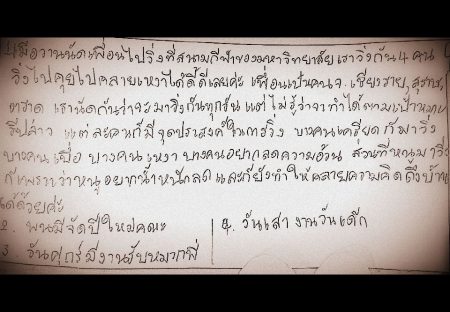 เมื่อวานนัดเพื่อนไปวิ่งที่สนามกีฬาของมหาวิทยาลัย เราวิ่งกัน 4 คน
วิ่งไปคุยไปคลายเหงาได้ดีเลยค่ะ เพื่อนเป็นคน จ. เชียงราย, สุราษฯ,
ตราด เรานัดกันว่าจะมาวิ่งกันทุกวัน แต่ไม่รู้ว่าจาทำได้ตามเป้าหมาย
รึปล่าว แต่ละคนก็มีจุดประสงค์ในการวิ่ง บางคนเครียดก็มาวิ่ง
บางคนเบื่อ บางคนเหงา บางคนอยากลดความอ้วน ส่วนที่หนูมาวิ่ง
ก็เพราะว่าหนูอยากน้ำหนักลด และก็ยังทำให้คลายความคิดถึงบ้าน
ได้ด้วยค่ะ
2. พนมีจัดปีใหม่คณะ
4. วันเสา งานวันเด็ก
3. วันศุกร์มีงานรับหมวกพี่